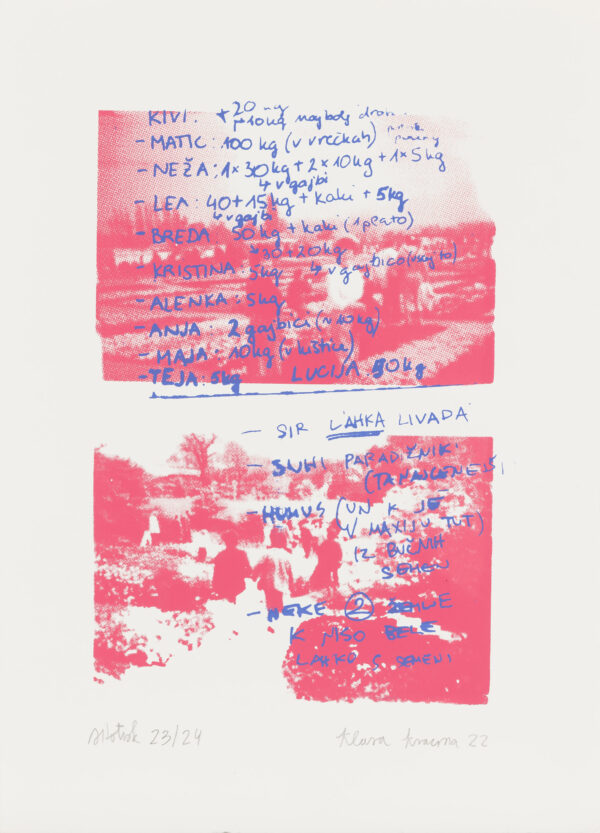 KIVI: + 20 kg
+10kg najbolj drobn.
- MATIC: 100 kg (v vrečkah)
- NEŽA: 1x30kg + 2x10kg + 1x5kg
4 v gajbi
- LEA: 40+15kg + kaki + 5kg
4 v gajbi
- BREDA: 50kg + kaki (1 plato)
30+20kg
- KRISTINA: 5kg 4 v gajbico
- ALENKA: 5kg
- ANJA: 2 gajbici
- MAJA: 10kg (v kištici)
- TEJA: 5kg LUCIJA 50kg
- SIR LAHKA LIVADA
- SUHI PARADIŽNIKI
- HUMUS (UN K JE
V MAXIJU TUT)
IZ BUČNIH
SEMEN
- NEKE 2 ŽEMLJE
K NISO BELE
LAHKO S SEMENI
sitotisk 23/24
Klara Kracina 22